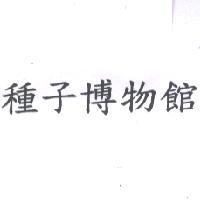 種子博物館